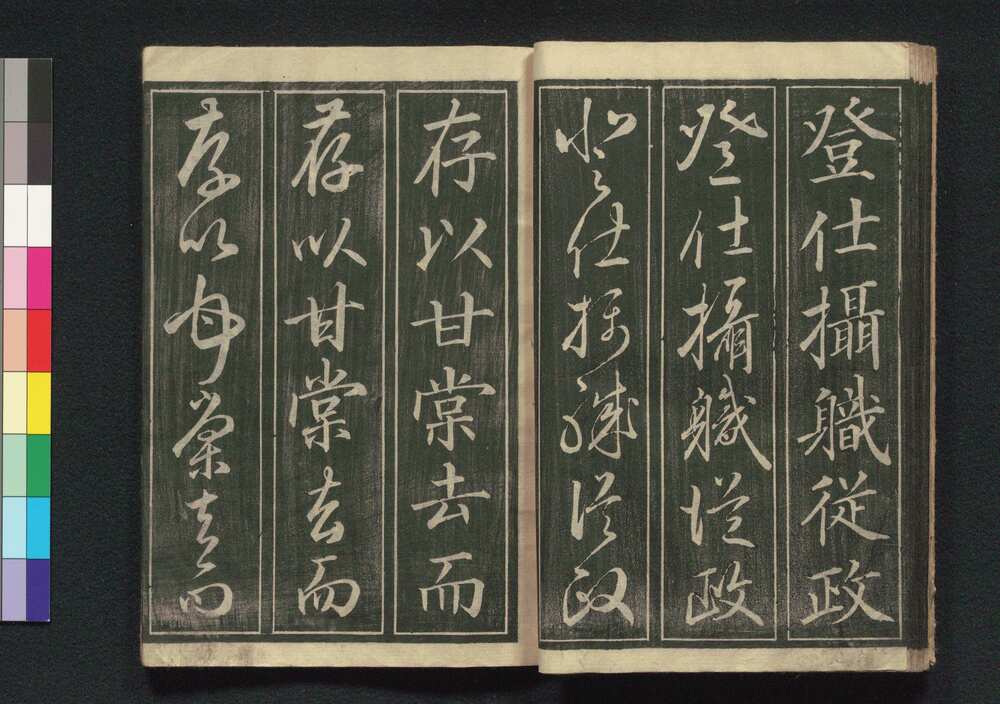 登仕攝職従政
登仕攝職従政
登仕攝職従政
存以甘棠去而
存以甘棠去而
存以甘棠去而